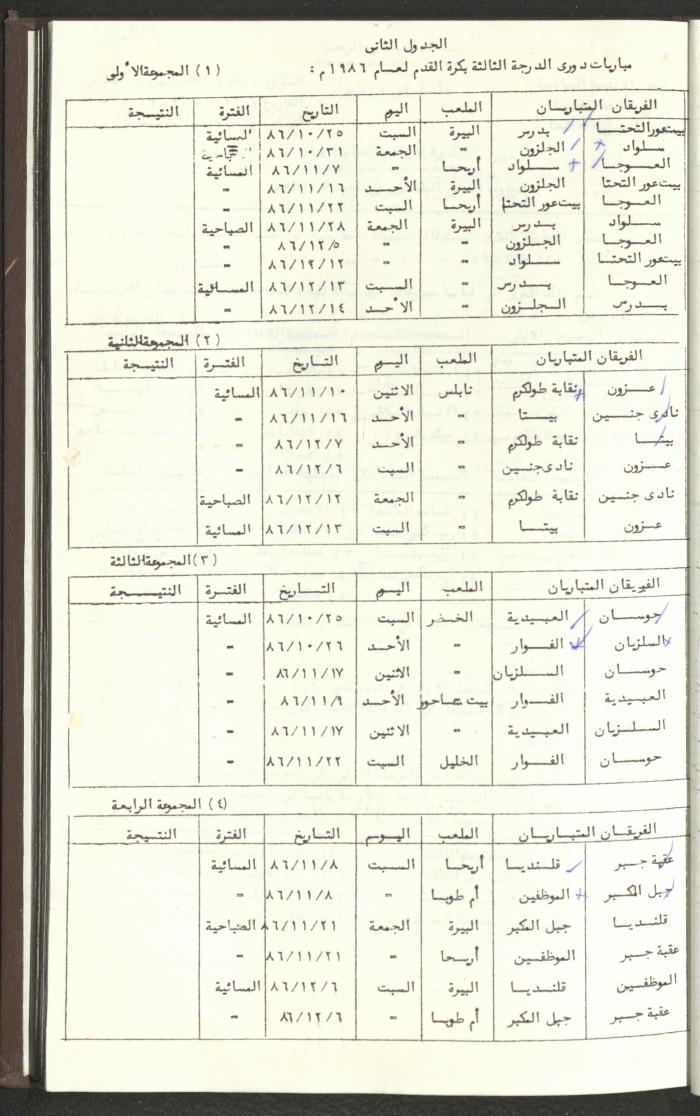 الجدول الثانى
مباريات دورى الدرجة الثالثة بكرة القدم لعام ١٩٨٦م :
(١) المجموعة الأولى
الفريقان المتباريان الملعب اليوم التاريخ الفترة النتيجة
بيتعور التحتا بدرس البيرة السبت ٨٦/١٠/٢٥ المسائية
سلواد الجلزون " الجمعة ٨٦/١٠/٣١
العوجا سلواد أريحا " ٨٦/١١/٧ المسائية
بيت عور التحتا الجلزون البيرة الأحد ٨٦/١١/١٦ "
العوجا بيت عور التحتا أريحا السبت ٨٦/١١/٢٢ "
سلواد بدرس البيرة الجمعة ٨٦/١١/٢٨ الصباحية
العوجا الجلزون " " ٨٦/١٢/٥ "
بيتعور التحتا سلواد " " ٨٦/١٢/١٢ "
العوجا بدرس " السبت ٨٦/١٢/١٣ المسائية
بدرس الجلزون " الأحد ٨٦/١٢/١٤ "
(٢) المجموعة الثانية
الفريقان المتباريان الملعب اليوم التاريخ الفترة النتيجة
عزون نقابة طولكرم نابلس الاثنين ٨٦/١١/١٠ المسائية
نادى جنين بيتا " الأحد ٨٦/١١/١٦ "
بيتا نقابة طولكرم " الأحد ٨٦/١٢/٧ "
عزون نادى جنين " السبت ٨٦/١٢/٦ "
نادى جنين نقابة طولكرم " الجمعة ٨٦/١٢/١٢ الصباحية
عزون بيتا " السبت ٨٦/١٢/١٣ المسائية
(٣) المجموعة الثالثة
الفريقان المتباريان الملعب اليوم التاريخ الفترة النتيجة
حوسان العبيدية الخضر السبت ٨٦/١٠/٢٥ المسائية
السلزيان الفوار " الأحد ٨٦/١٠/٢٦ "
حوسان السلزيان " الاثنين ٨٦/١١/١٧ "
العبيدية الفوار بيت ساحور الأحد ٨٦/١١/٩ "
السلزيان العبيدية " الاثنين ٨٦/١١/١٧ "
حوسان الفوار الخليل السبت ٨٦/١١/٢٢ "
(٤) المجموعة الرابعة
الفريقان المتباريان الملعب اليوم التاريخ الفترة النتيجة
عقبة جبر قلنديا أريحا السبت ٨٦/١١/٨ المسائية
جبل المكبر الموظفين أم طوبا " ٨٦/١١/٨ "
قلنديا جبل المكبر البيرة الجمعة ٨٦/١١/٢١ الصباحية
عقبة جبر الموظفين أريحا " ٨٦/١١/٢١ "
الموظفين قلنديا البيرة السبت ٨٦/١٢/٦ المسائية
عقبة جبر جبل المكبر أم طوبا " ٨٦/١٢/٦ "